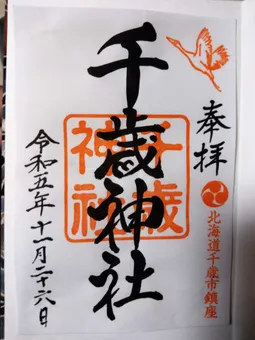 奉拝
北海道千歳市鎮座
千歳神社
千歳神社
令和五年十一月二十六日